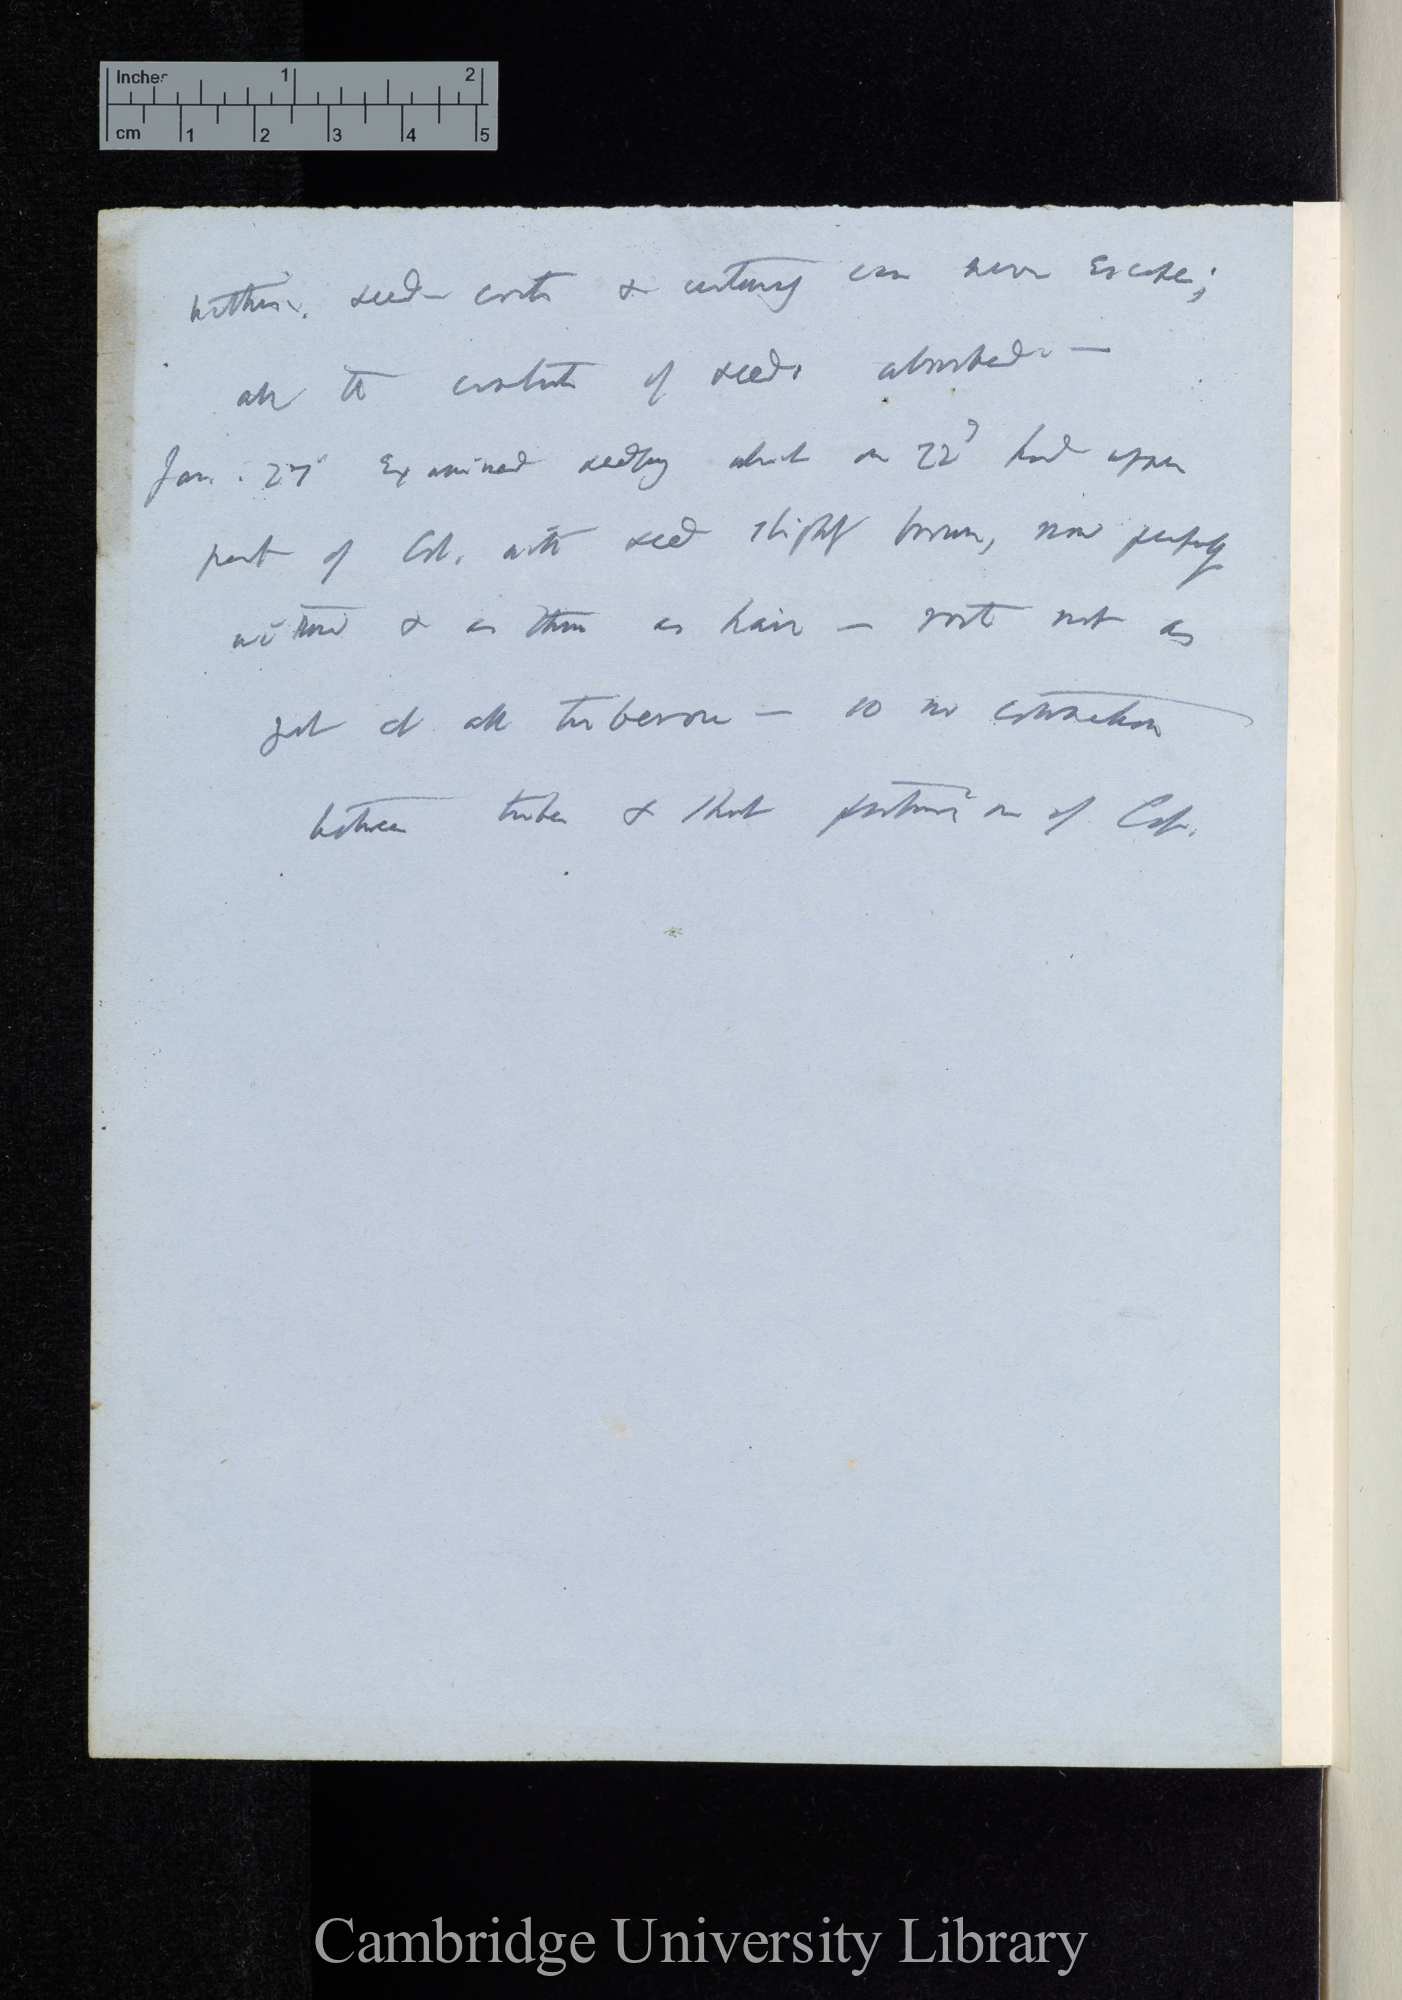 Inches 1 2
cm 1 2 3 4 5
within seed-coats & certainly can never escape;
all the contents of seeds absorbed —
Jan. 27 Examined seedling which on 22d had upper
part of Cot. with seed slightly brown, now perfectly
withered & as thin as hair — root not as
yet at all tuberous — so no connection
between tuber & that of Cot.
Cambridge University Library